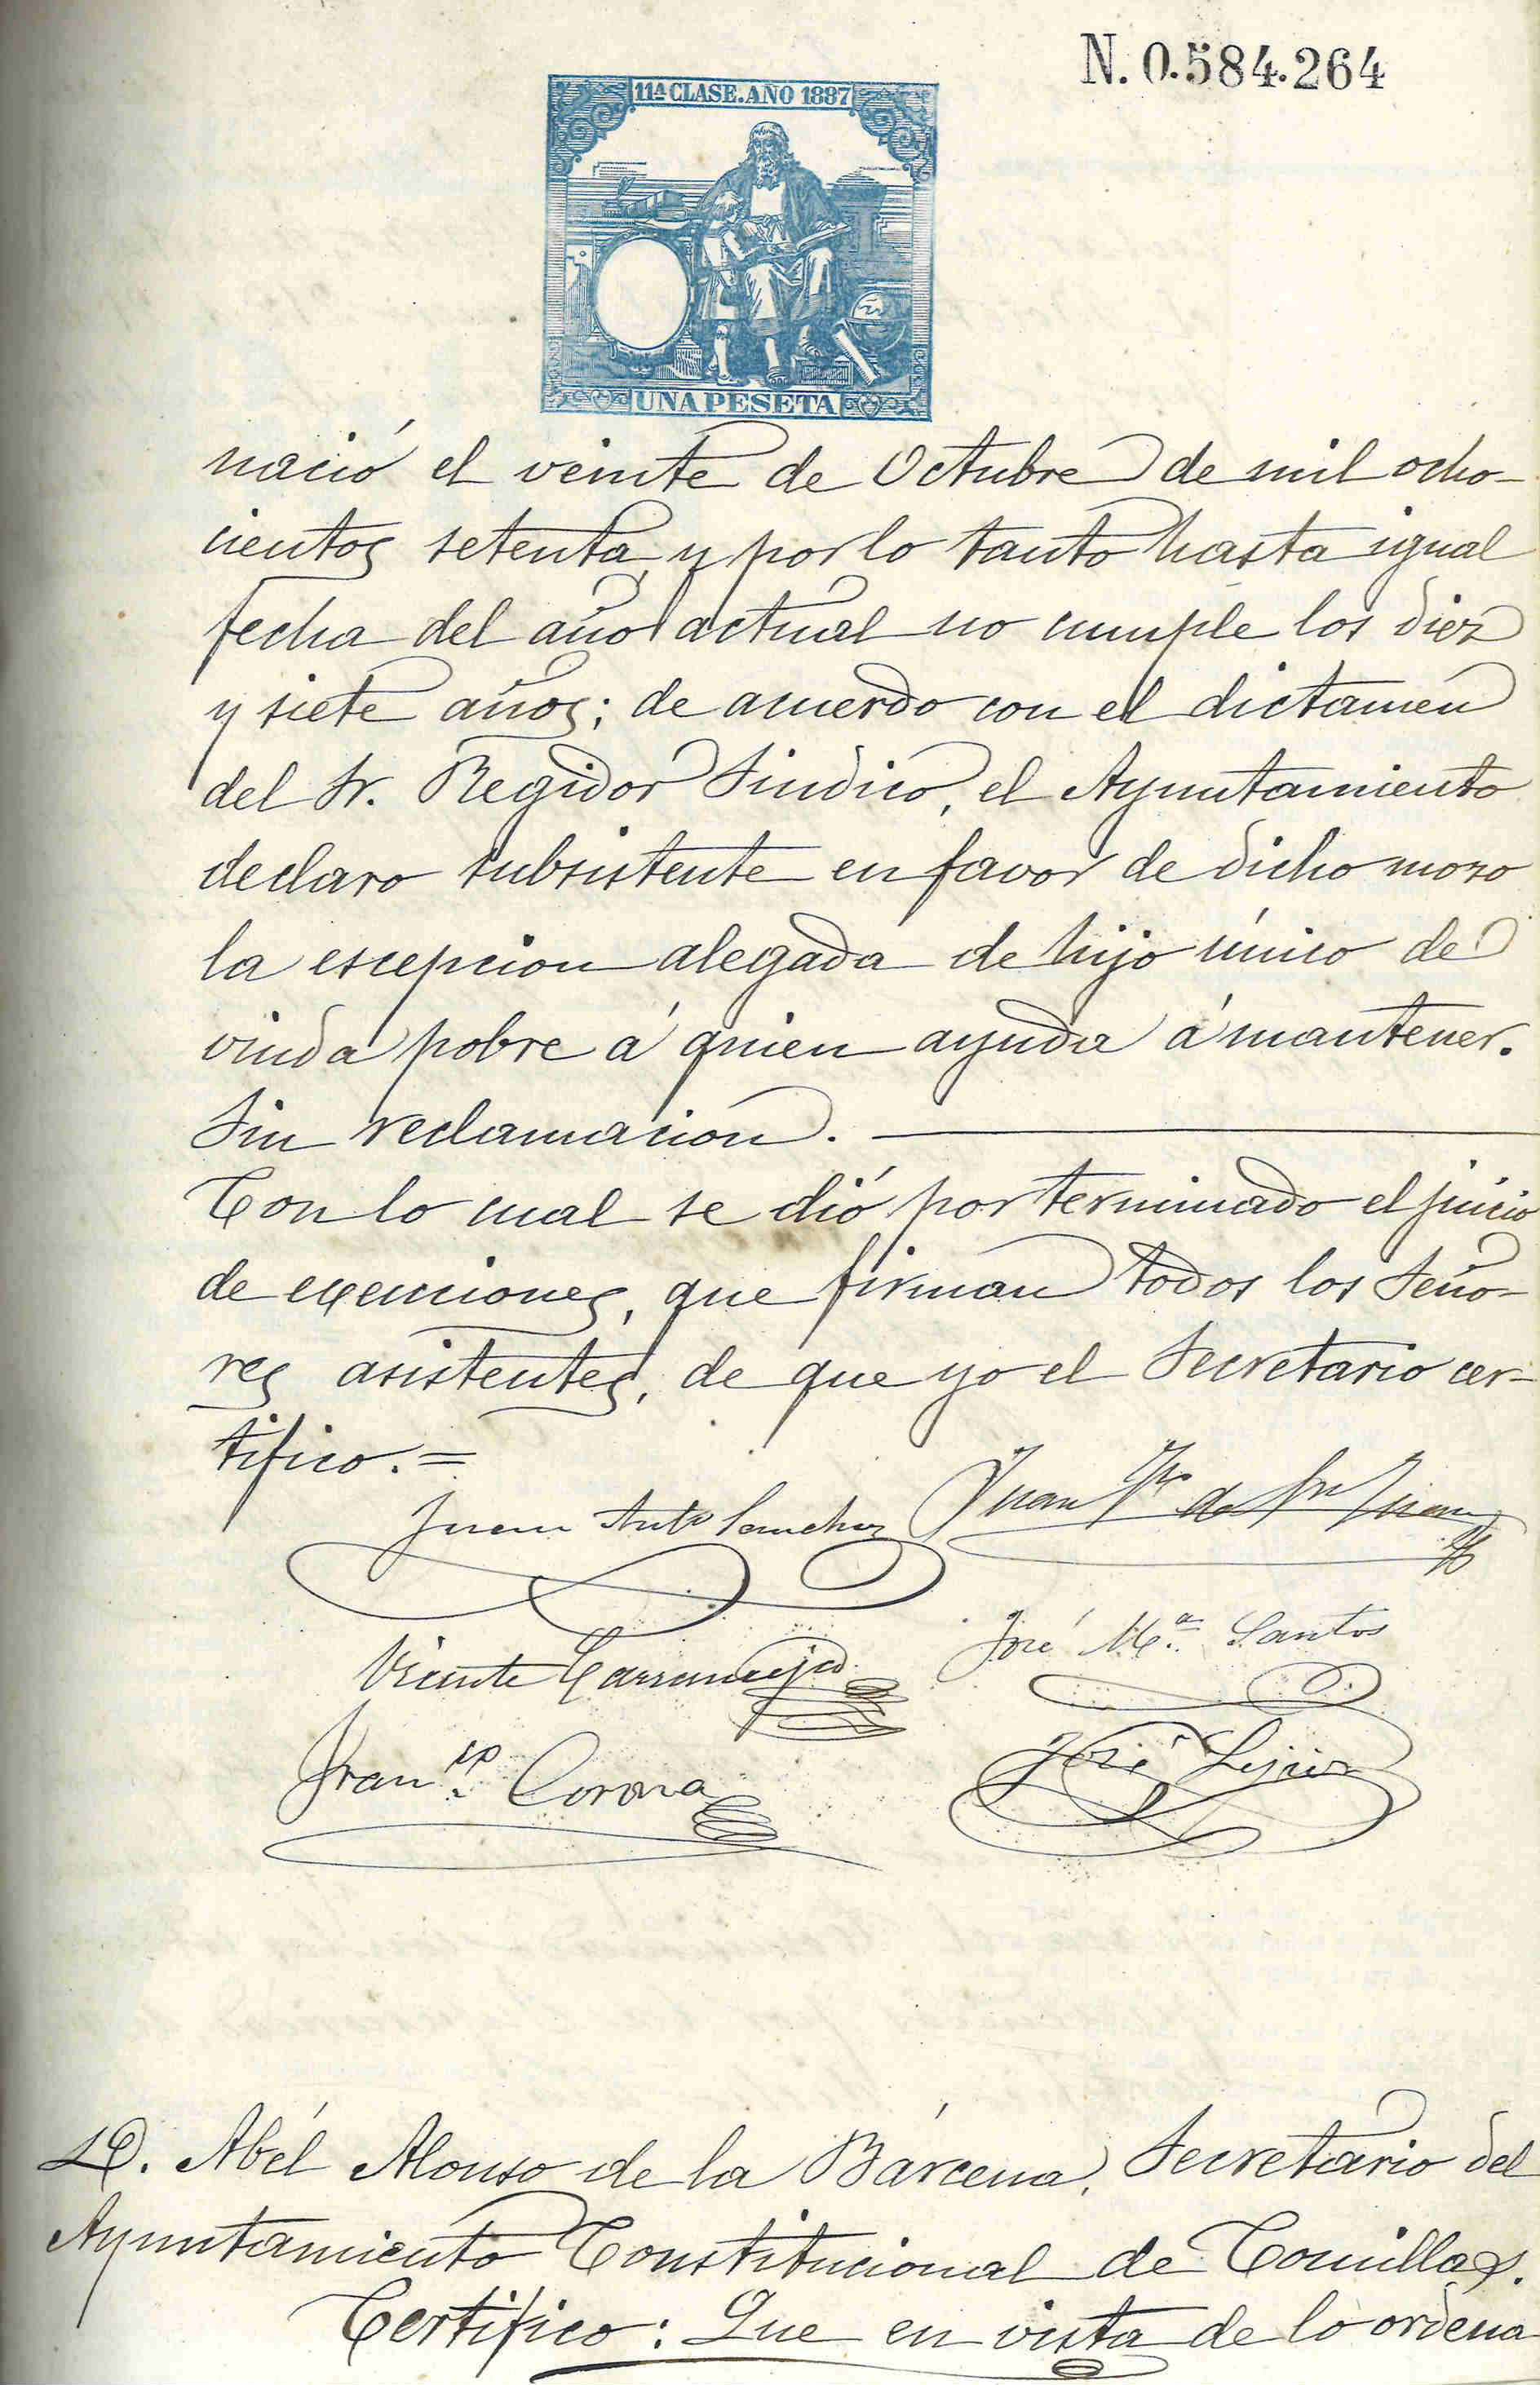 N. 0.584.264
11ª CLASE. AÑO 1887
UNA PESETA
nació el veinte de Octubre de mil ocho-
cientos setenta, y por lo tanto hasta igual
fecha del año actual no cumple los diez
y siete años; de acuerdo con el dictamen
del Sr. Regidor Sindico, el Ayuntamiento
declaro subsistente en favor de dicho mozo
la escepcion alegada de hijo único de
viuda pobre á quien ayuda á mantener.
Sin reclamacion.
Con lo cual se dió por terminado el juicio
de exenciones, que firman todos los Seño-
res asistentes, de que yo el Secretario cer-
tifico. =
Juan Antº Sanchez Juan de Sn Juan
Vicente José Mª Santos
Franco Corona José
D. Abél Alonso de la Bárcena, Secretario del
Ayuntamiento Constitucional de Comillas.
Certifico: Que en vista de lo ordena